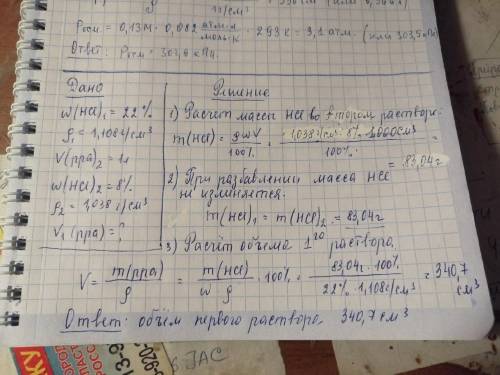 Росм = 0,13М · 0,082 атм·л/моль·К · 293 К = 3,1 атм. (или 303,5 кПа)
Ответ: Росм = 303,
Дано
Решение
ω(HCl)₁ = 22%
ρ₁ = 1,108 г/см³
V(рра)₂ = 1л
ω(HCl)₂ = 8%
ρ₂ = 1,038 г/см³
V₁(рра) = ?
1) Расчет массы HCl во втором растворе.
m(HCl) = ρωV/100% = 1,038 г/см³ · 8% · 1000см³/100% =
= 83,04г
2) При разбавлении масса HCl
не изменяется.
m(HCl)₁ = m(HCl)₂ = 83,04г
3) Расчёт объема 1го раствора
V = m(рра)/ρ = m(HCl)/ω·ρ · 100% = 83,04г · 100%/22% · 1,108г/см³ = 340,7
см³
Ответ: объём первого раствора 340,7 см³